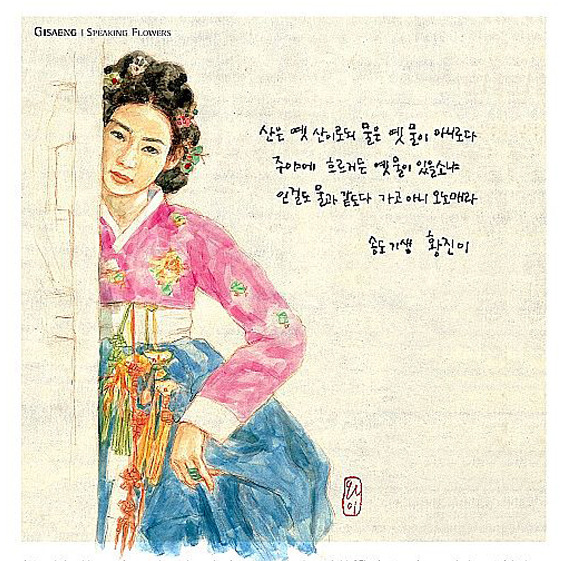 GISAENG | SPEAKING FLOWERS
산은 옛 산이로되 물은 옛 물이 아니로다
주야에 흐르거든 옛 물이 있을소냐
인걸도 물과 같도다 가고 아니 오노매라
송도기생 황진이